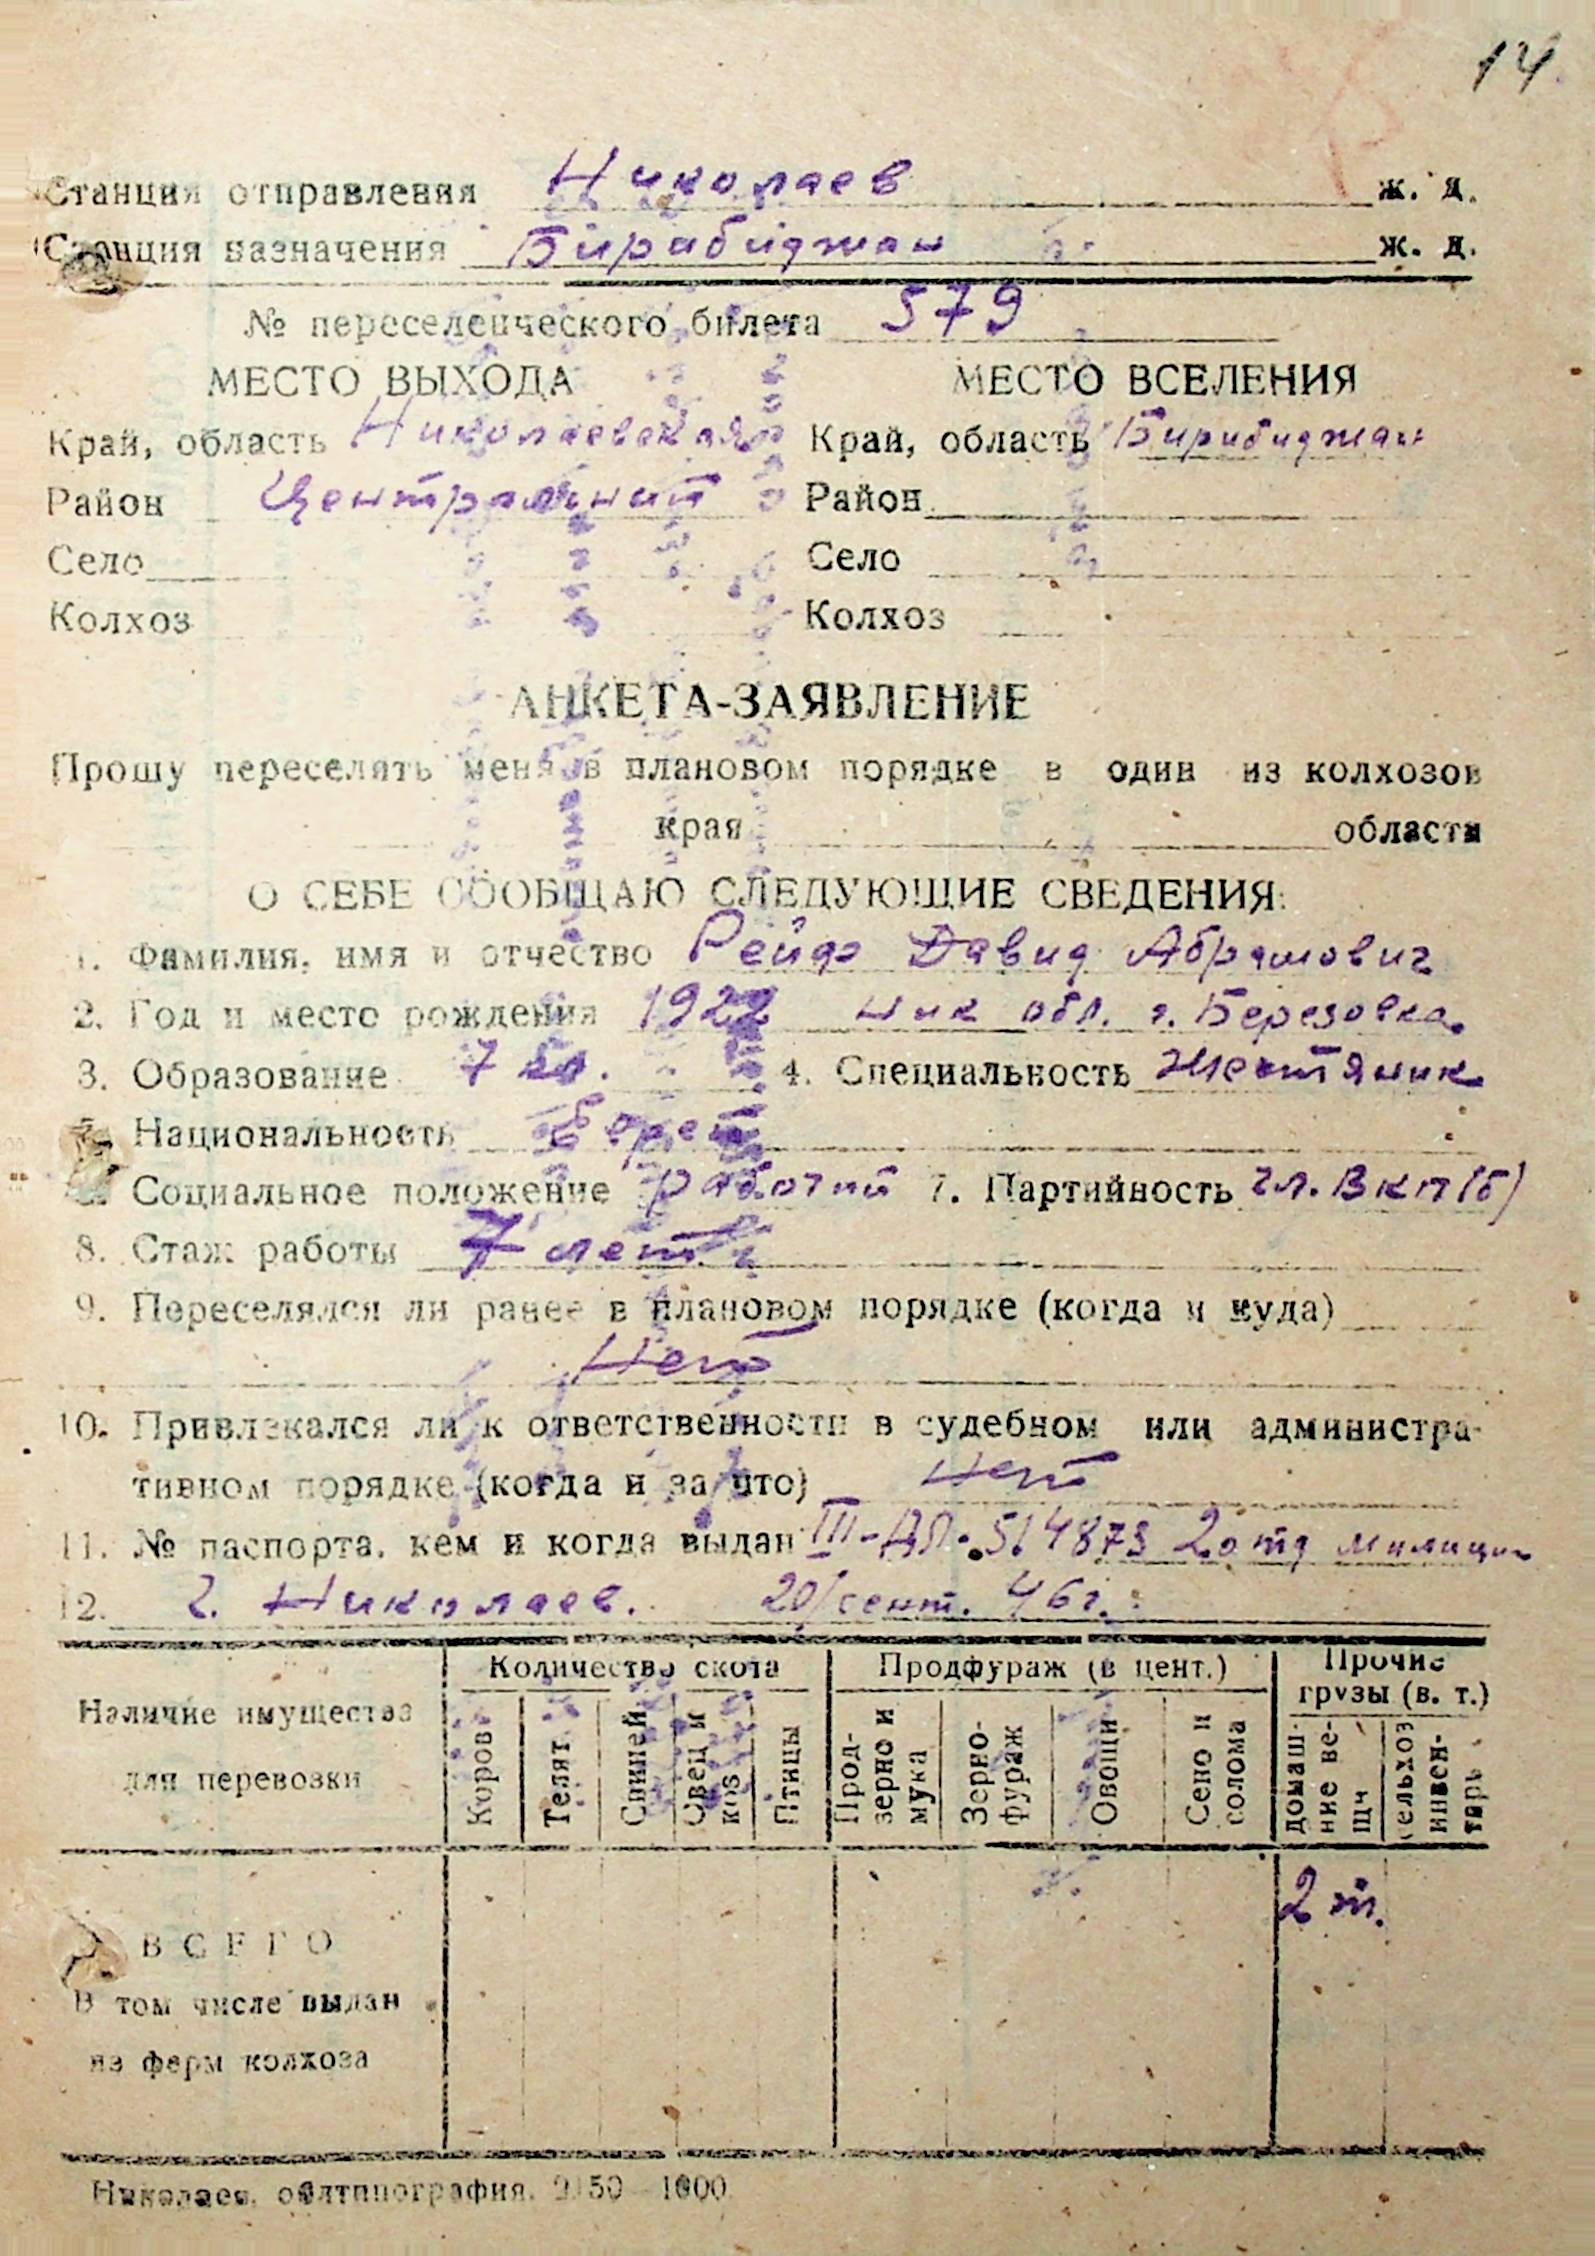 14
Станция отправления Николаев ж. д.
Станция назначения Бирабиджан ж. д.
№ переселенческого билета 579
МЕСТО ВЫХОДА МЕСТО ВСЕЛЕНИЯ
Край, область Николаевская Край, область Бирибиджан
Район Центральний Район
Село Село
Колхоз Колхоз
АНКЕТА-ЗАЯВЛЕНИЕ
Прошу переселять меня в плановом порядке в один из колхозов
края области
О СЕБЕ СООБЩАЮ СЛЕДУЮЩИЕ СВЕДЕНИЯ:
1. Фамилия, имя и отчество Рейф Давид Абрамович
2. Год и место рождения 1922 Ник обл. г. Березовка.
3. Образование 7 кл. 4. Специальность Жестяник
5. Национальность Еврей
Социальное положение рабочий 7. Партийность чл. ВКП(б)
8. Стаж работы 7 лет
9. Переселялся ли ранее в плановом порядке (когда и куда)
Нет
10. Привлекался ли к ответственности в судебном или администра-
тивном порядке (когда и за что) Нет
11. № паспорта, кем и когда выдан III-ДЛ. 514873 2 отд милиции
12. г. Николаев. 20/сент. 46г.
Количество скота Продфураж (в цент.) Прочие
грузы (в. т.)
Наличие имущества
для перевозки
Коров Телят Свиней Овец и коз Птицы Прод-зерно и мука Зерно-фураж Овощи Сено и солома домаш-ние ве-щи сельхоз инвен-тарь
2 т.
ВСЕГО
В том числе выдан
из ферм колхоза
Николаев, облтипография. 1000